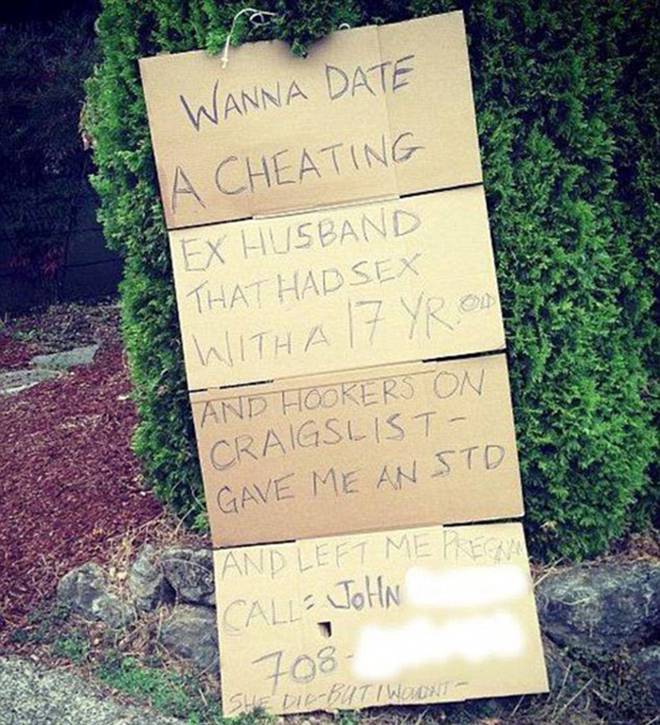 WANNA DATE
A CHEATING
EX HUSBAND
THAT HAD SEX
WITH A 17 YR. OLD
AND HOOKERS ON
CRAIGSLIST -
GAVE ME AN STD
AND LEFT ME PREGNAN
CALL: JOHN
708-
SHE DID - BUT I WOULDNT -